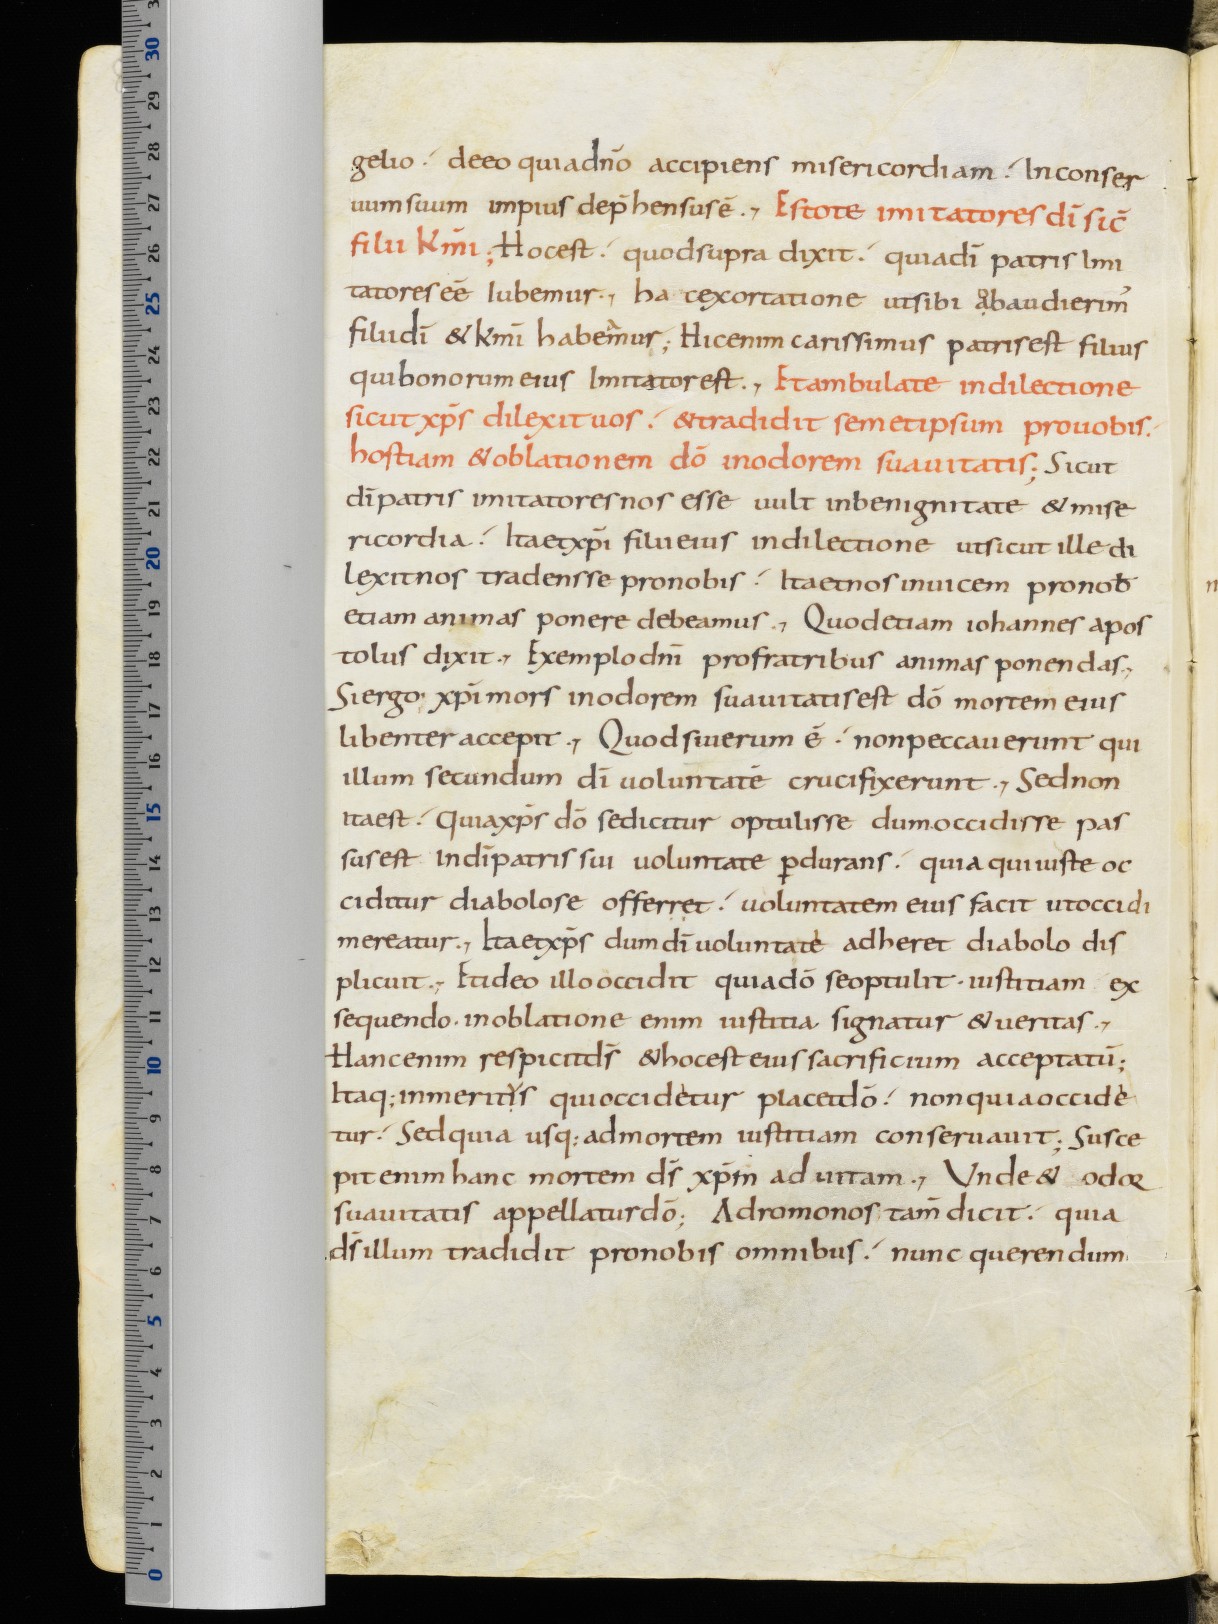 gelio ⁝ deeo quiadn̄o accipiens misericordiam ⁝ Inconser
uumsuum impius dep̄hensusē ., Estote imitatoresdī sic̄
filii km̄i ; Hocest ⁝ quodsupra dixit ⁝ quiadī patris Imi
tatoreseē Iubemur ., ha cexortatione utsibi abaudierim̄
filiidī & km̄i habemur ; Hicenim carissimus patrisest filius
quibonorumeius Imitatorest ., Etambulate indilectione
sicutxp̄s dilexituos ⁝ &tradidit semetipsum prouobis ⁝
hostiam &oblationem dō inodorem suauitatis ; Sicut
dīpatris imitatoresnos esse uult inbenignitate & mise
ricordia ⁝ Itaetxp̄i filiieius indilectione utsicut illedi
lexitnos tradensse pronobis ⁝ Itaetnosinuicem pronob̄
etiam animas ponere debeamus ., Quodetiam iohannes apos
tolus dixit ., Exemplodnī profratribus animas ponendas .,
Siergo xp̄imors inodorem suauitatisest dō mortem eius
libenter accepit ., Quodsiuerum ē ⁝ nonpeccauerunt qui
illum secundum dī uoluntatē crucifixerunt ., Sednon
itaest ⁝ Quiaxp̄s dō sedicitur optulisse dumoccidisse pas
susest Indīpatris sui uoluntate ꝑdurans ⁝ quia quiiuste oc
ciditur diabolose offerret ⁝ uoluntatem eius facit utoccidi
mereatur ., Itaetxp̄s dumdīuoluntatē adheret diabolo dis
plicuit ., Etideo illooccidit quiadō seoptulit · iustitiam ex
sequendo · inoblatione enim iustitia signatur & ueritas .,
Hancenim respicitds̄ &hocesteius sacrificium acceptatū ;
Itaq; inmeritis quioccidetur placetdō ⁝ nonquiaoccide
tur ⁝ Sedquia usq; admortem iustitiam conseruauit ; Susce
pitenimhanc mortem ds̄ xp̄m̄ ad uitam ., Unde & odor
suauitatis appellaturdō ; Adromonos tam̄ dicit ⁝ quia
ds̄illum tradidit pronobis omnibus ⁝ nunc querendum